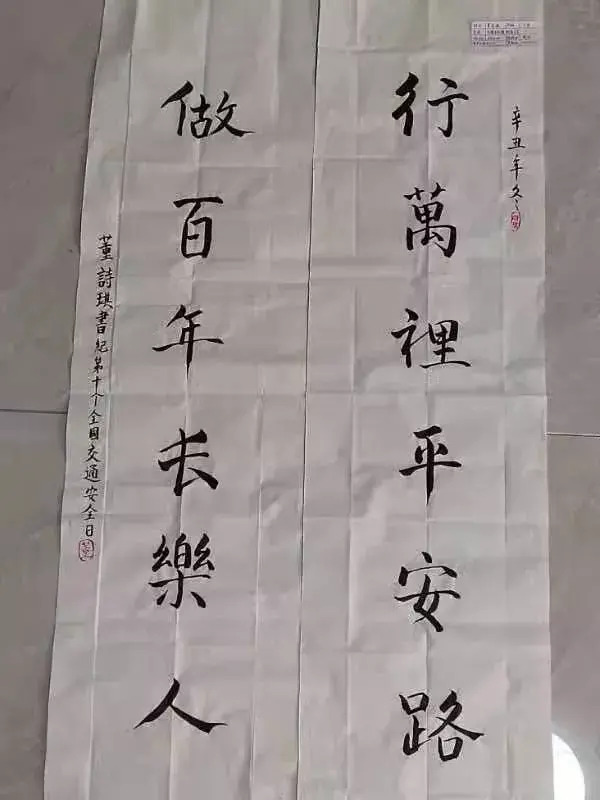 辛丑年冬
行萬裡平安路
做百年长樂人
董詩琪書紀第十个全国交通安全日